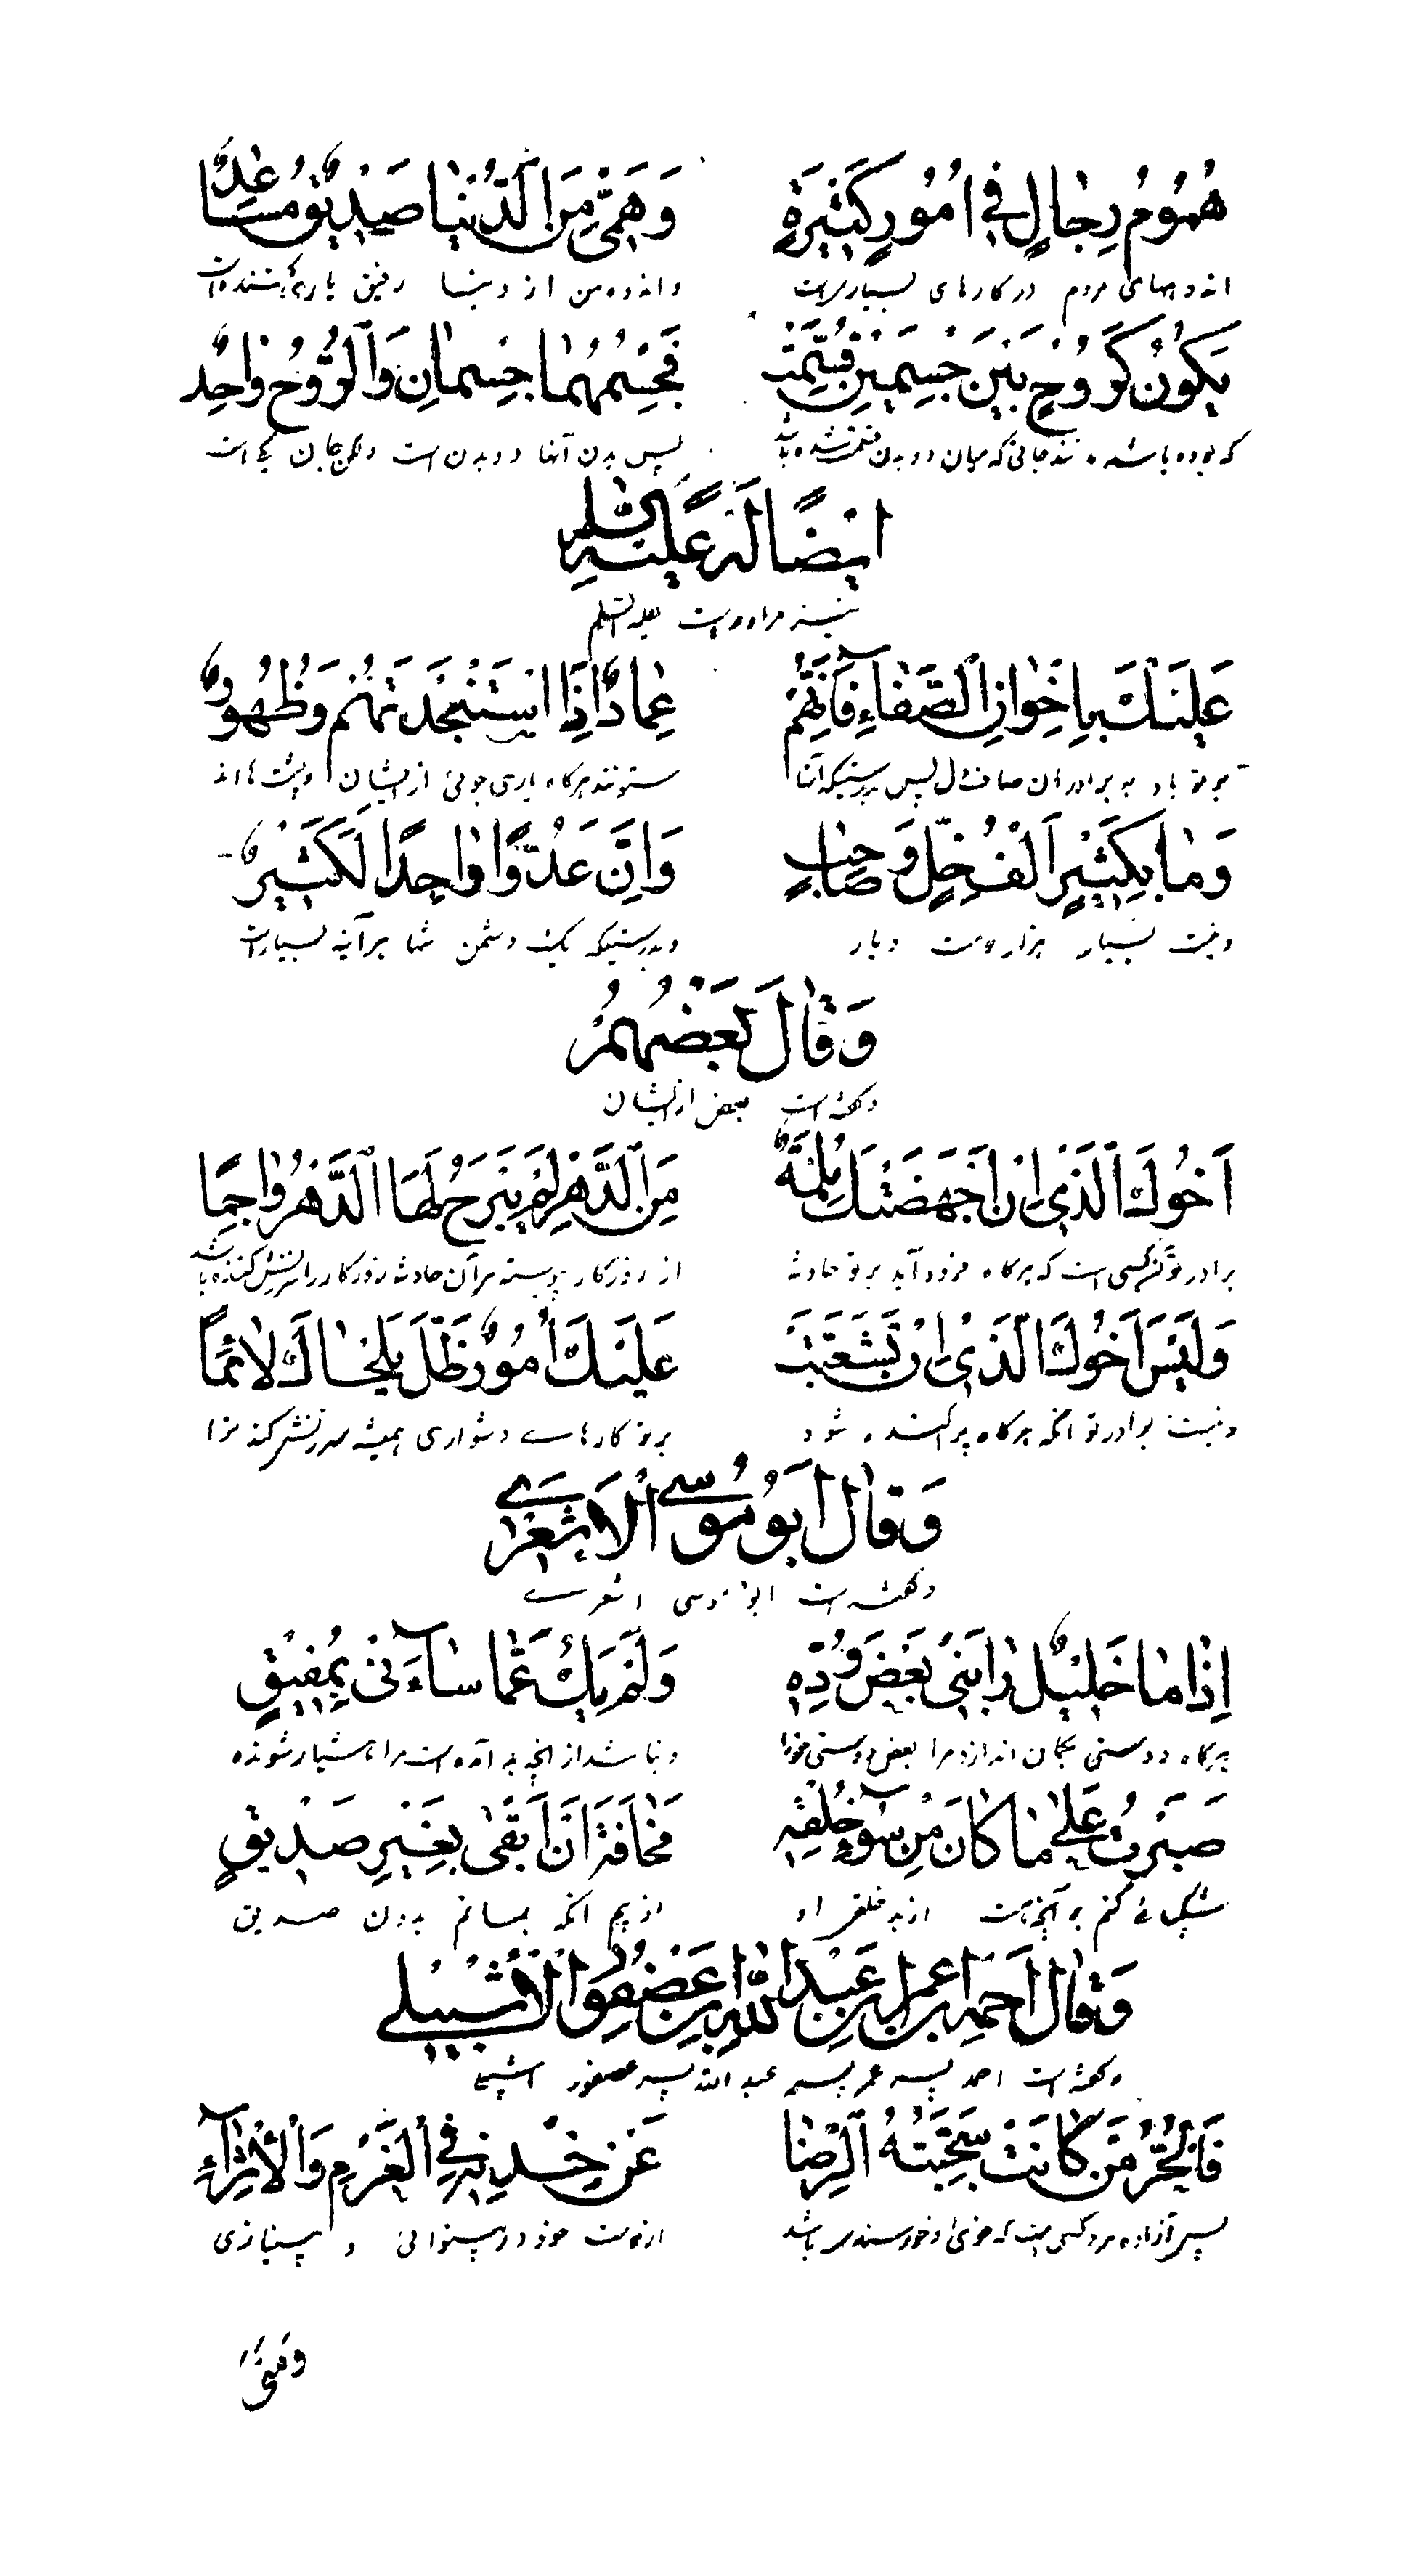 هُمُومُ رِجالٍ فی اُمُورٍ کَثیرَةٍ وَهَمّی مِنَ الدُّنیا صَدیقٌ مُساعِدٌ
اندوههای مردم در کارهای بسیار است و اندوه من از دنیا رفیق یاری کننده است
یَکُونُ کَرُوحٍ بَیْنَ جِسْمَیْنِ قُسِّمَتْ فَجِسْمُهُما جِسْمانِ وَالرُّوحُ واحِد
که بوده باشد مانند جانی که میان دو بدن قسمت شده باشد پس بدن آنها دو بدن است و لکن جان یکی است
ایضًا لَهُ عَلَیْهِ السَّلام
نیز مر او راست علیه السلام
عَلَیْكَ بِاِخْوانِ الصَّفاءِ فَاِنَّهُمْ عِمادٌ اِذَا اسْتَنْجَدْتَهُمْ وَظُهُورٌ
بر تو باد به برادران صافدل پس بدرستیکه آنها ستونند هرگاه یاری جوئی از ایشان و پشت ها اند
وَما بِکَثیرٍ اَلْفُ خِلٍّ وَصاحِبٍ وَاِنَّ عَدُوًّا واحِدًا لَکَثیرٌ
و نیست بسیار هزار دوست و یار و بدرستیکه یک دشمن شما هر آینه بسیار است
وَقالَ بَعْضُهُمْ
و گفته است بعض از ایشان
اَخُوكَ الَّذی اِنْ اَجْهَضَتْكَ مُلِمَّةٌ مِنَ الدَّهْرِ لَمْ یَبْرَحْ لَهَا الدَّهْرُ واجِمًا
برادر تو آنکسی است که هرگاه فرود آید بر تو حادثه از روزگار پیوسته مر آن حادثه روزگار را سرزنش کننده باشد
وَلَیْسَ اَخُوكَ الَّذی اِنْ تَشَعَّبَتْ عَلَیْكَ اُمُورٌ ظَلَّ یَلْحاكَ لائِمًا
و نیست برادر تو آنکه هرگاه پراکنده شود بر تو کارهای دشواری همیشه سرزنش کند ترا
وَقالَ اَبُو مُوسَی الْاَشْعَری
و گفته است ابو موسی اشعری
اِذا ما خَلیلٌ رابَنی بَعْضُ وُدِّهِ وَلَمْ یَكُ عَمّا ساءَنی بِمُفیقٍ
هرگاه دوستی بگمان اندازد مرا بعض دوستی خود را و نباشد از آنچه بد آمده است مرا هشیار شونده
صَبَرْتُ عَلی ما کانَ مِنْ سُوءِ خُلْقِهِ مَخافَةَ اَنْ اَبْقی بِغَیْرِ صَدیقٍ
شکیبائی کنم بر آنچه هست از بد خلقی او از بیم آنکه بمانم بدون صدیق
وَقالَ اَحْمَدُ بْنُ عُمَرَ بْنِ عَبْدِ اللهِ بْنِ عَصْفُورِ الْاَشْبیلی
و گفته است احمد پسر عمر پسر عبد الله پسر عصفور اشبیلی
فَالْحُرُّ مَنْ کانَتْ سَجِیَّتُهُ الرِّضا عَنْ خِدْنِهِ فِی الْغُرْمِ وَالْاِثْراءِ
پس آزاده مرد کسی است که خوی او خورسندی باشد از دوست خود در بینوائی و بینیازی